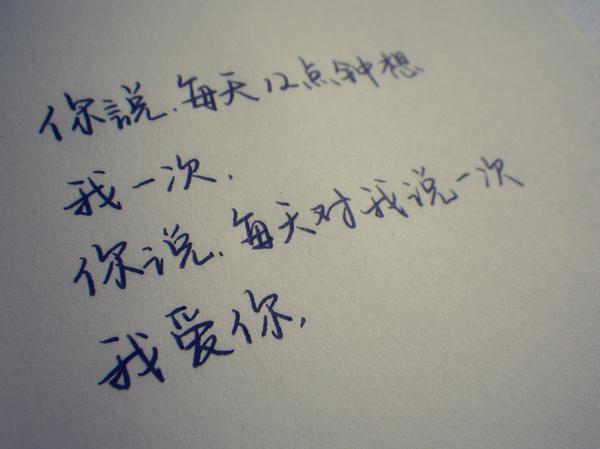 你説.每天12点钟想
我一次.
你说.每天对我说一次
我爱你,